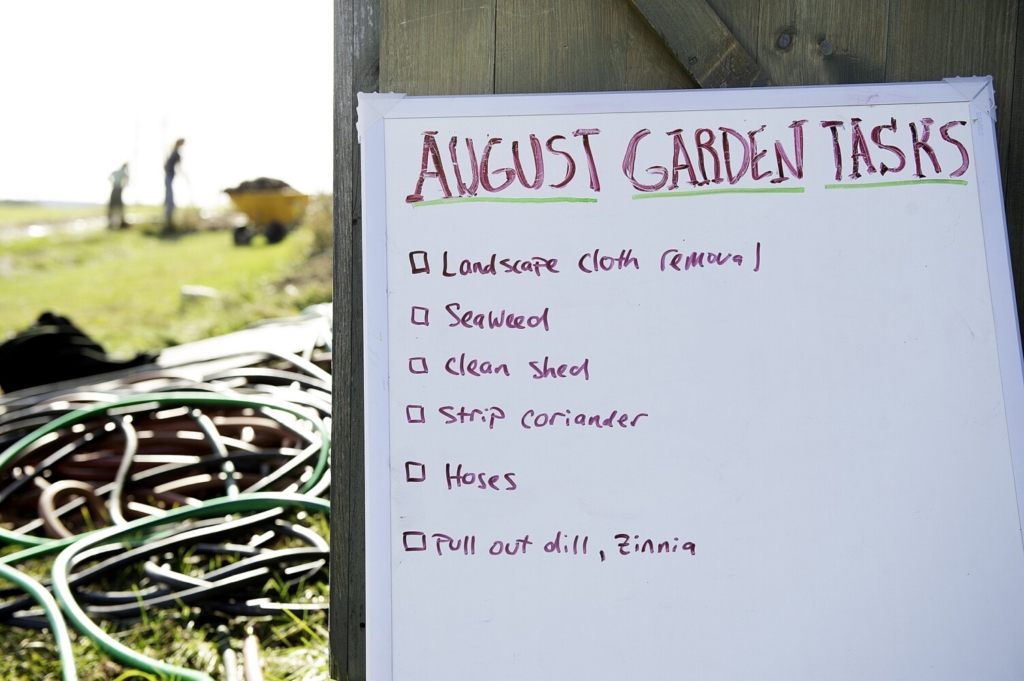 AUGUST GARDEN TASKS
Landscape cloth removal
Seaweed
Clean shed
Strip coriander
Hoses
Pull out dill, Zinnia